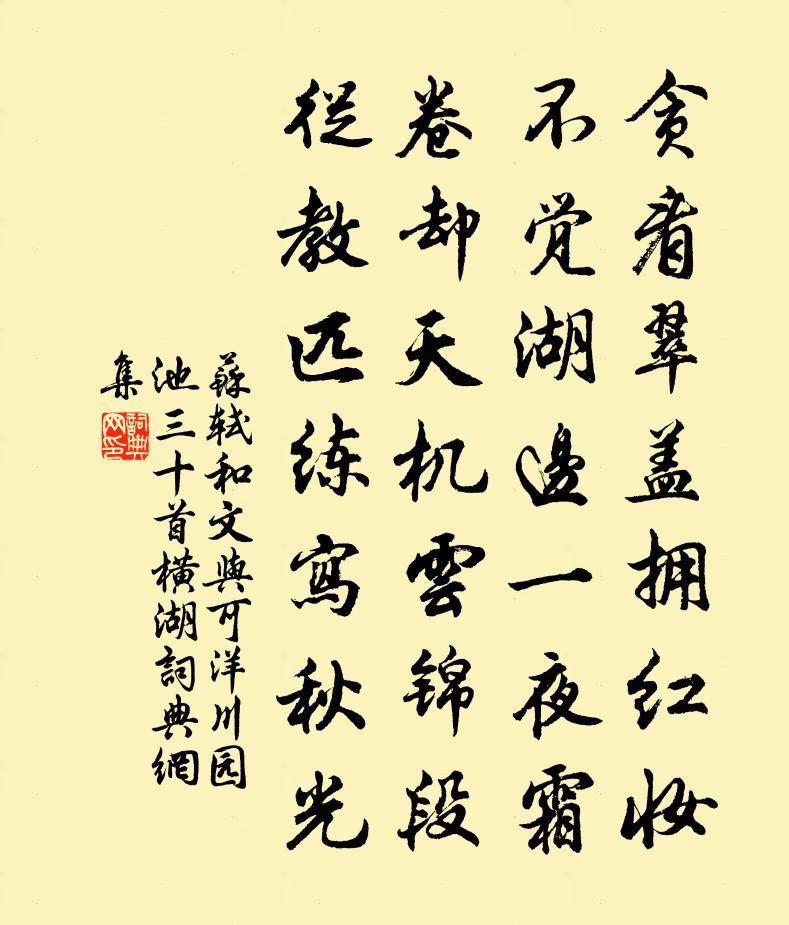 贪看翠盖拥红妆
不觉湖邊一夜霜
卷却天机雲锦段
從教匹练寫秋光
蘇轼和文與可洋川园
池三十首横湖詞典網
集
詞典
网印